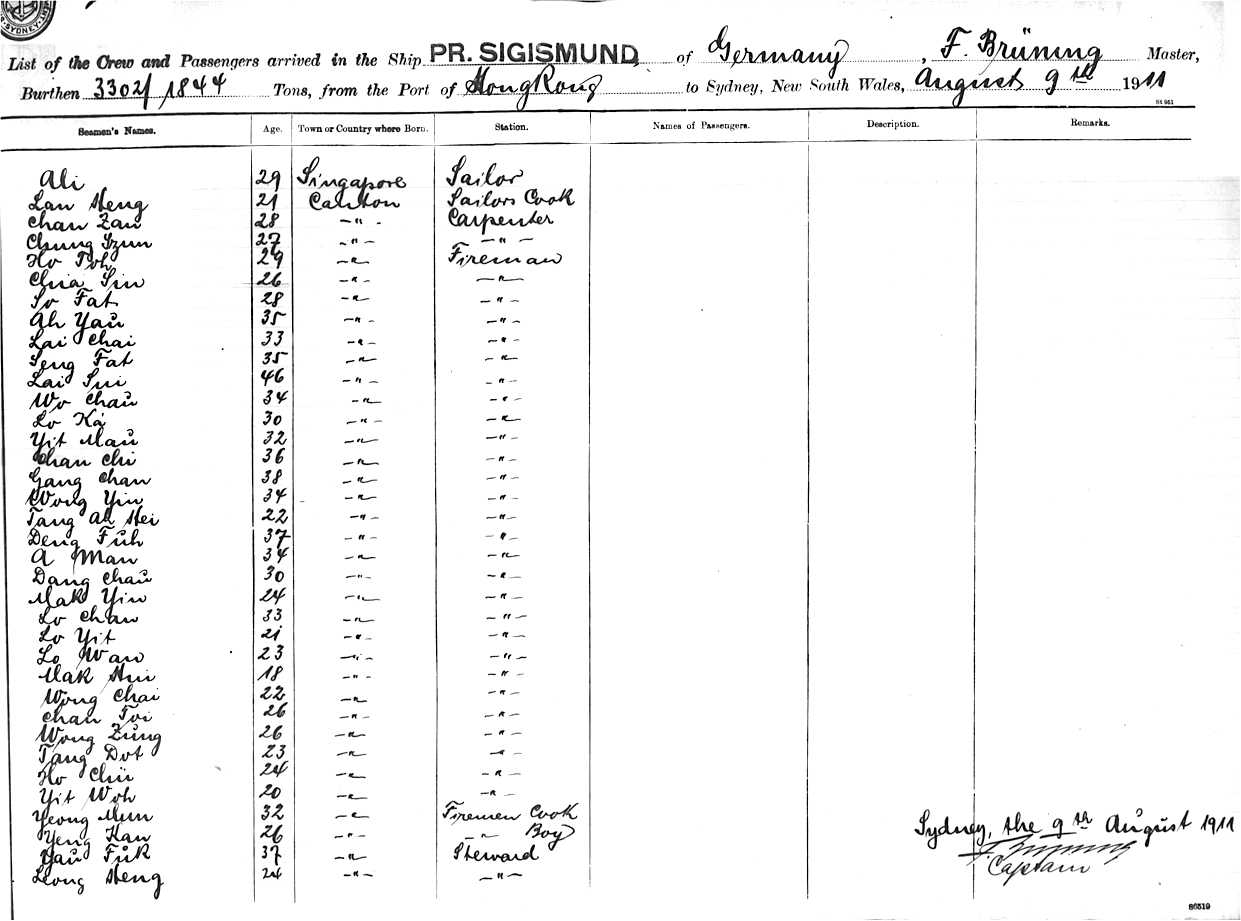 SYDNEY
List of the Crew and Passengers arrived in the Ship PR. SIGISMUND of Germany, F. Brüning Master,
Burthen 3302/1844 Tons, from the Port of HongKong to Sydney, New South Wales, August 9th 1911
Seamen's Names. Age. Town or Country where Born. Station. Names of Passengers. Description. Remarks.
Ali 29 Singapore Sailor
Lan Heng 21 Canton Sailors Cook
Chan Zau 28 —"— Carpenter
Chung Tzun 27 —"— —"—
Ho Toh 29 —"— Fireman
Chia Sin 26 —"— —"—
So Fat 28 —"— —"—
Ah Yaŭ 35 —"— —"—
Lai Chai 33 —"— —"—
Seng Fat 35 —"— —"—
Lai Sui 46 —"— —"—
Wo Chaŭ 34 —"— —"—
Lo Ka 30 —"— —"—
Yit Maŭ 32 —"— —"—
Chan Chi 36 —"— —"—
Gang Chan 38 —"— —"—
Wong Yin 34 —"— —"—
Tang Ah Hei 22 —"— —"—
Deng Fŭh 37 —"— —"—
A Man 34 —"— —"—
Dang Chaŭ 30 —"— —"—
Mak Yin 24 —"— —"—
Lo Chan 33 —"— —"—
Lo Yit 21 —"— —"—
Lo Wan 23 —"— —"—
Mak Hui 18 —"— —"—
Wong Chai 22 —"— —"—
Chan Toi 26 —"— —"—
Wong Zŭng 26 —"— —"—
Tang Dot 23 —"— —"—
Ho Chü 24 —"— —"—
Yit Woh 20 —"— —"—
Yeong Mun 32 —"— Firemen Cook
Yeng Kan 26 —"— —"— Boy
Yaŭ Fŭk 37 —"— Steward
Leong Heng 24 —"— —"—
Sydney, the 9th August 1911
F. Brüning
Captain
86519